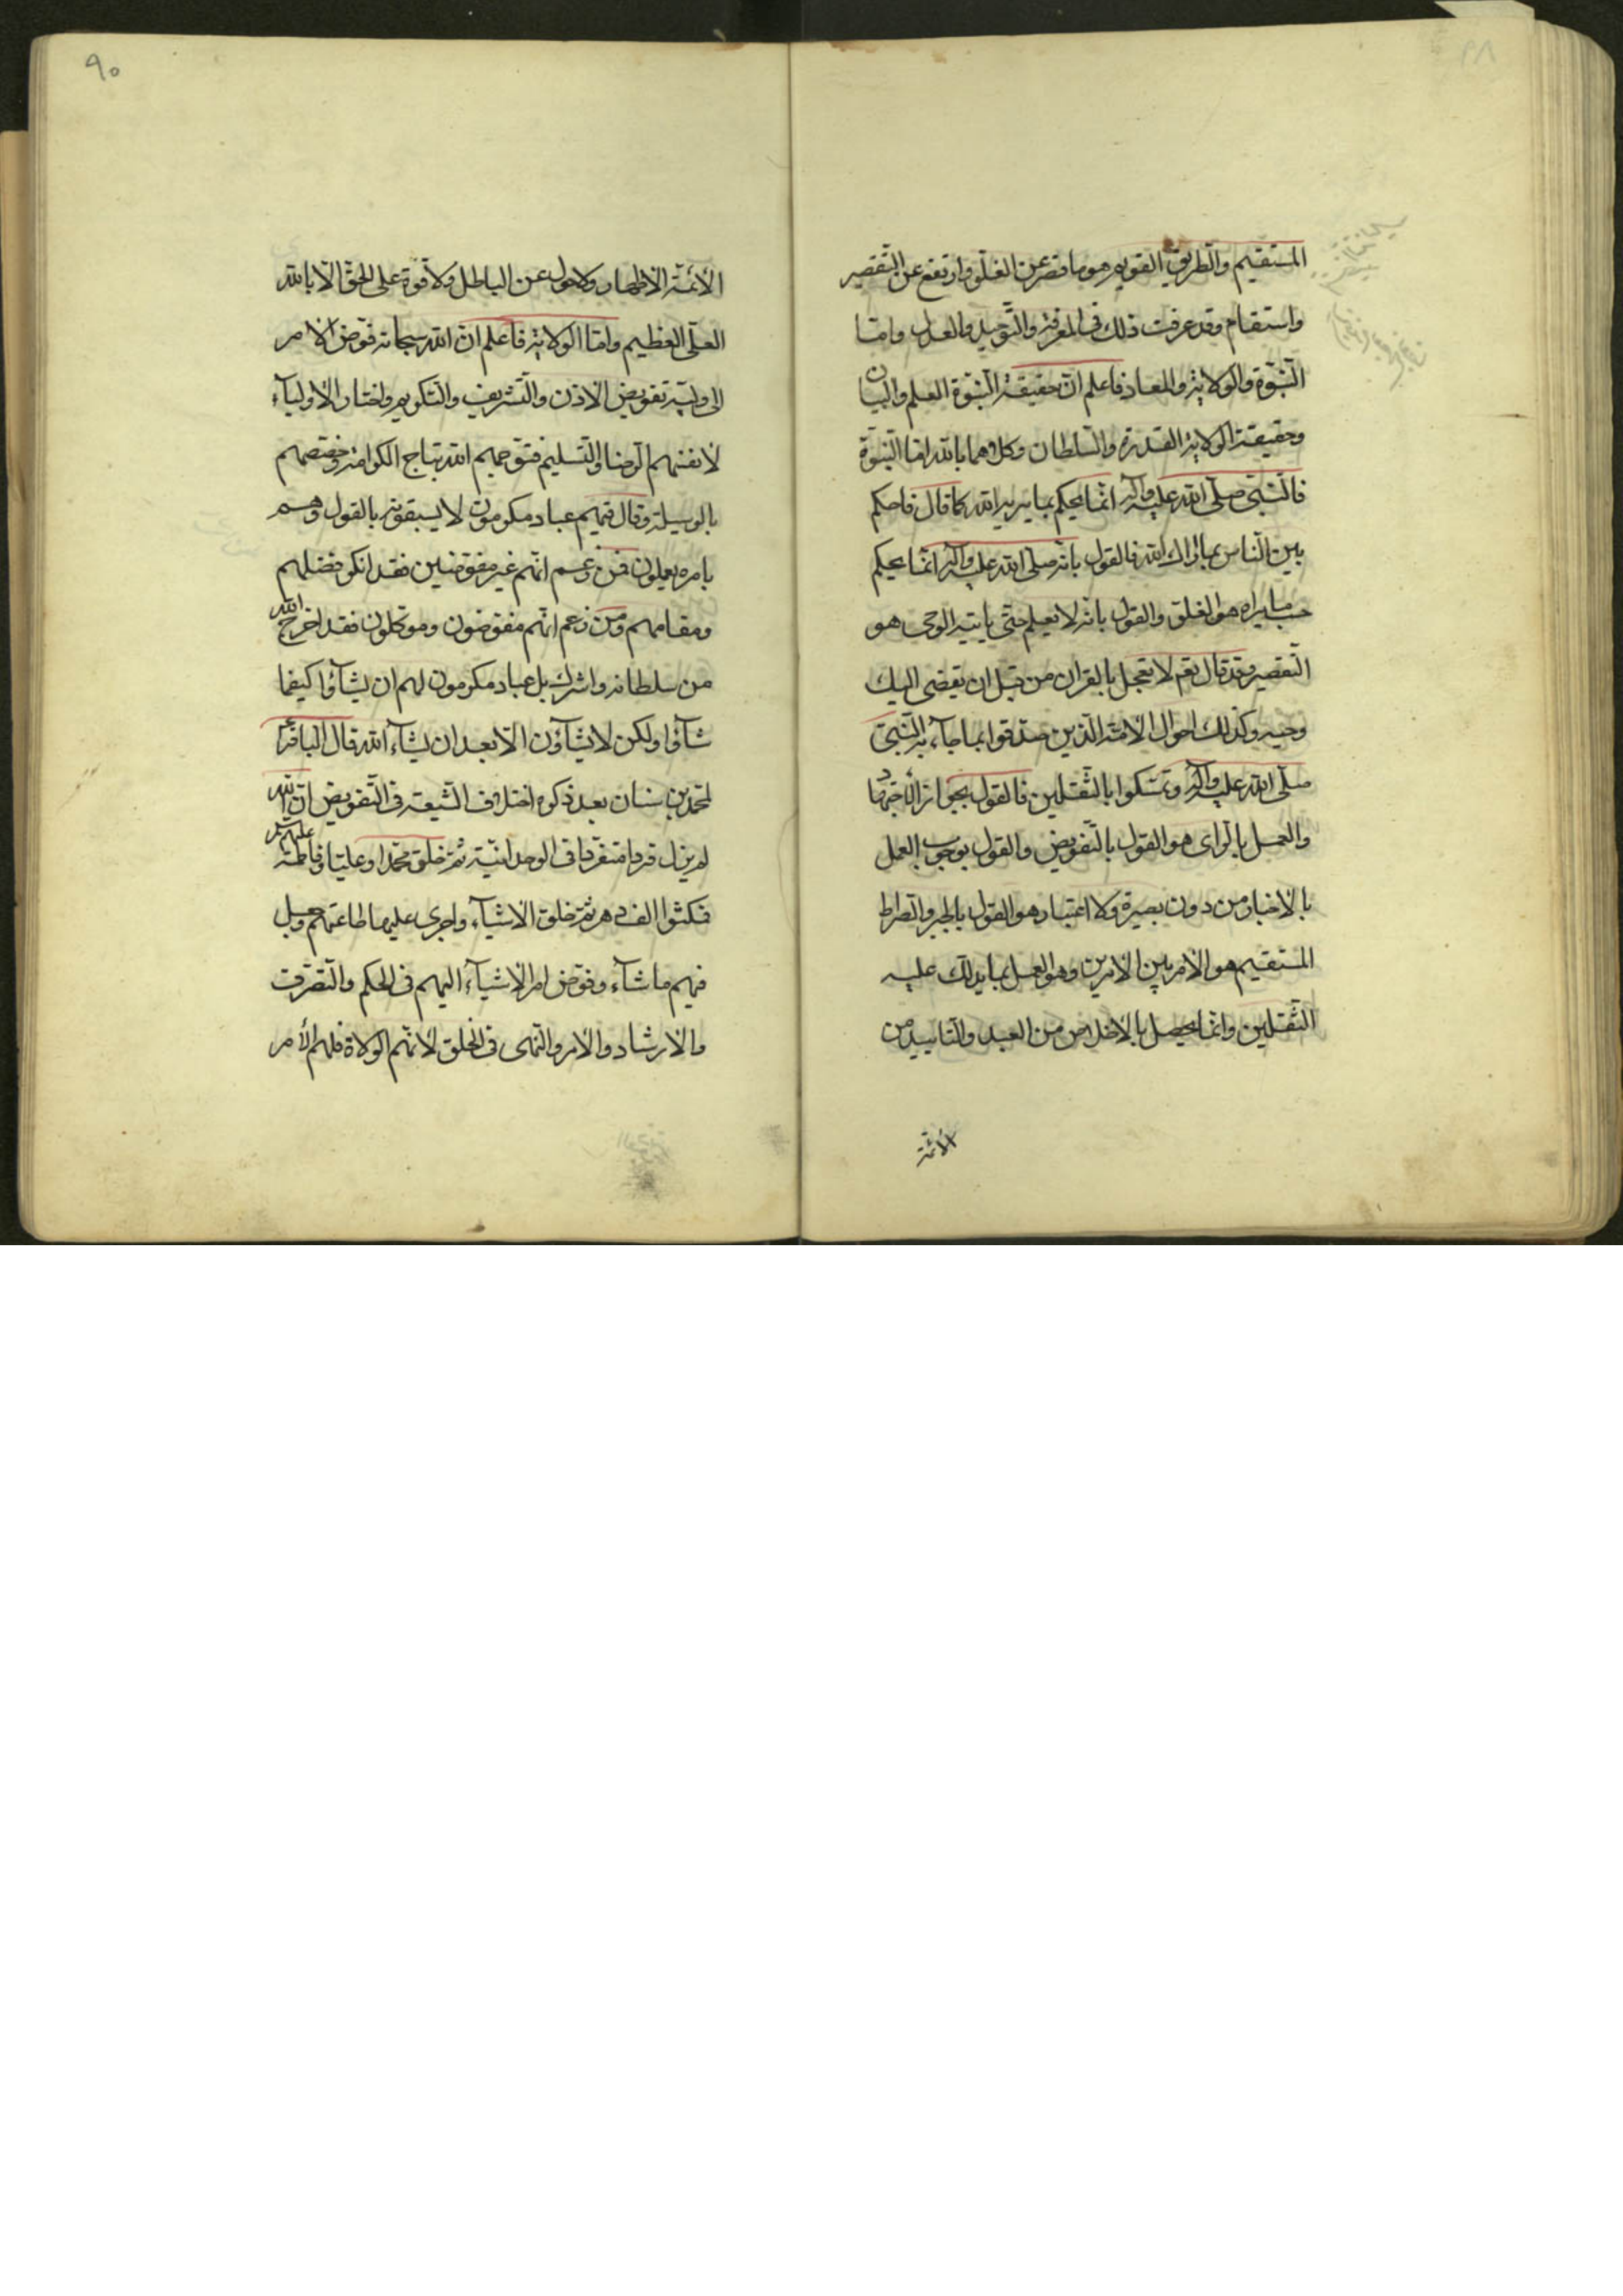 المستقيم والطريق القويم هو ما قصر عن الغلّو وارتفع عن التّقصير
واستقام وقد عرفت ذلك فى المعرفة والتّوحيد والعدل وامّا
النّبوّة والولاية والمعاد فاعلم انّ حقيقة النّبوّة العلم والبيان
وحقيقة الولاية القدرة والسّلطان وكلاهما بالله امّا النّبوّة
فالنّبىّ صلّى الله عليه وآله انّما يحكم بما يريد الله كما قال فاحكم
بين النّاس بما اراك الله فالقول بانّه صلّى الله عليه وآله انّما يحكم
حسب ما يراه هو الغلق والقول بانّه لا يعلم حتّى ياتيه الوحى هو
التّقصير وقد قال تعم لا تعجل بالقران من قبل ان يقضى اليك
وحيه وكذلك احوال الامّة الّذين صدّقوا بما جآء به النّبىّ
صلّى الله عليه وآله وتمسّكوا بالثّقلين فالقول بجواز الاجتهاد
والعمل بالرّاى هو القول بالتّفويض والقول بوجوب العمل
بالاخبار من دون بصيرة ولا اعتبار هو القول بالجبر والصّراط
المستقيم هو الامر بين الامرين وهو العمل بما يدلّك عليه
الثّقلين وانّما يحصل بالاخلاص من العبد والتّاييد من
الائمّة
٩٠
الائمّة الاطهار ولا حول عن الباطل ولا قوّة على الحقّ الّا بالله
العلّى العظيم وامّا الولاية فاعلم انّ الله سبحانه فوّض الامر
الى وليّه تفويض الاذن والتّشريف والتّكريم واختار الاوليآء
لانفسهم الرّضا والتّسليم فتوّجهم الله بتاج الكرامة وخصّهم
بالوسيلة وقال فيهم عباد مكرمون لا يسبقونه بالقول وهم
بامره يعملون فمن زعم انّهم غير مفوّضين فقد انكر فضلهم
ومقامهم ومن زعم انّهم مفوّضون وموكّلون فقد اخرج الله
من سلطانه واشرك بل عباد مكرمون لهم ان يشآؤا كيفما
شآؤا ولكن لا يشآؤن الّا بعد ان يشآء الله قال الباقر
لمحمّد بن سنان بعد ذكره اختلاف الشّيعة فى التّفويض انّ الله
لم يزل فردا متفرّدا فى الوحدانيّة ثمّ خلق محمّدا وعليّا وفاطمة عليهم
فمكثوا الف دهر ثمّ خلق الاشيآء واجرى عليها طاعتهم وجعل
فيهم ما شآء وفوّض امر الاشيآء اليهم فى الحكم والتّصرّف
والارشاد والامر والنّهى فى الخلق لانّهم الولاة فلهم الأمر